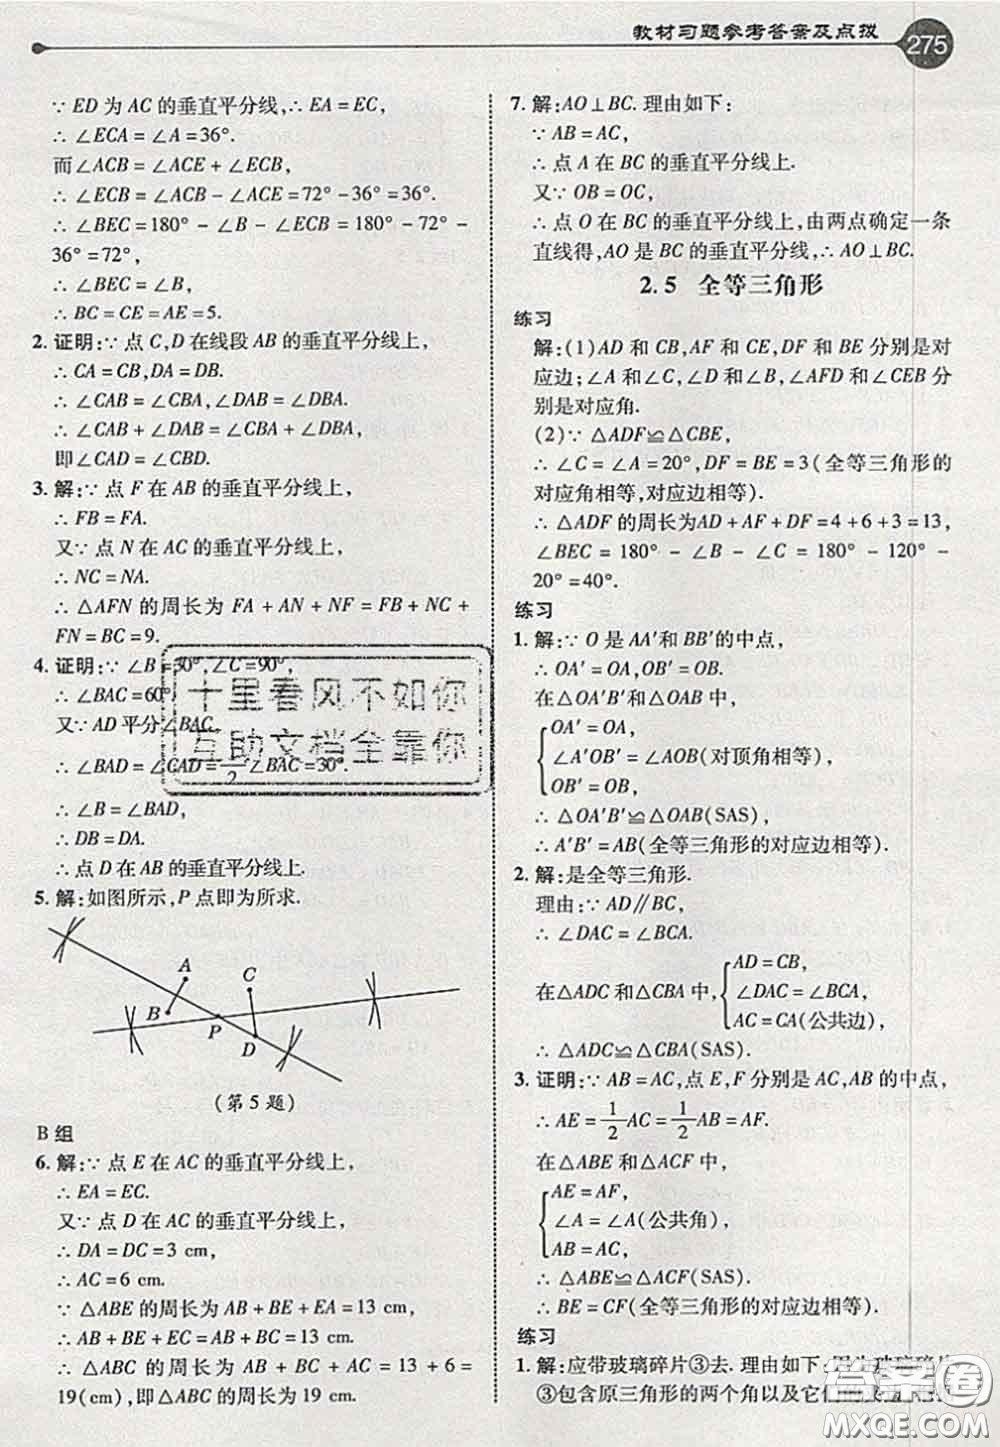 教材习题参考答案及点拨 275
∵ED为AC的垂直平分线,∴EA=EC,
∴∠ECA=∠A=36°.
而∠ACB=∠ACE+∠ECB,
∴∠ECB=∠ACB-∠ACE=72°-36°=36°.
∴∠BEC=180°-∠B-∠ECB=180°-72°-
36°=72°,
∴∠BEC=∠B,
∴BC=CE=AE=5.
2. 证明:∵点C,D在线段AB的垂直平分线上,
∴CA=CB,DA=DB.
∴∠CAB=∠CBA,∠DAB=∠DBA.
∴∠CAB+∠DAB=∠CBA+∠DBA,
即∠CAD=∠CBD.
3. 解:∵点F在AB的垂直平分线上,
∴FB=FA.
又∵点N在AC的垂直平分线上,
∴NC=NA.
∴△AFN的周长为FA+AN+NF=FB+NC+
FN=BC=9.
4. 证明:∵∠B=30°,∠C=90°,
∴∠BAC=60°.
又∵AD平分∠BAC,
∴∠BAD=∠CAD=1/2∠BAC=30°.
∴∠B=∠BAD,
∴DB=DA.
∴点D在AB的垂直平分线上.
十里春风不如你
互助文档全靠你
5. 解:如图所示,P点即为所求.
A
C
B
P
D
(第5题)
B组
6. 解:∵点E在AC的垂直平分线上,
∴EA=EC.
又∵点D在AC的垂直平分线上,
∴DA=DC=3 cm,
∴AC=6 cm.
∵△ABE的周长为AB+BE+EA=13 cm,
∴AB+BE+EC=AB+BC=13 cm.
∴△ABC的周长为AB+BC+AC=13+6=
19(cm),即△ABC的周长为19 cm.
7. 解:AO⊥BC. 理由如下:
∵AB=AC,
∴点A在BC的垂直平分线上.
又∵OB=OC,
∴点O在BC的垂直平分线上,由两点确定一条
直线得,AO是BC的垂直平分线,∴AO⊥BC.
2.5 全等三角形
练习
解:(1)AD和CB,AF和CE,DF和BE分别是对
应边;∠A和∠C,∠D和∠B,∠AFD和∠CEB分
别是对应角.
(2)∵△ADF≌△CBE,
∴∠C=∠A=20°,DF=BE=3(全等三角形的
对应角相等,对应边相等).
∴△ADF的周长为AD+AF+DF=4+6+3=13,
∠BEC=180°-∠B-∠C=180°-120°-
20°=40°.
练习
1. 解:∵O是AA′和BB′的中点,
∴OA′=OA,OB′=OB.
在△OA′B′和△OAB中,
OA′=OA,
∠A′OB′=∠AOB(对顶角相等),
OB′=OB,
∴△OA′B′≌△OAB(SAS),
∴A′B′=AB(全等三角形的对应边相等).
2. 解:是全等三角形.
理由:∵AD∥BC,
∴∠DAC=∠BCA.
AD=CB,
在△ADC和△CBA中, ∠DAC=∠BCA,
AC=CA(公共边),
∴△ADC≌△CBA(SAS).
3. 证明:∵AB=AC,点E,F分别是AC,AB的中点,
∴AE=1/2AC=1/2AB=AF.
在△ABE和△ACF中,
AE=AF,
∠A=∠A(公共角),
AB=AC,
∴△ABE≌△ACF(SAS).
∴BE=CF(全等三角形的对应边相等).
练习
1. 解:应带玻璃碎片③去. 理由如下:因为玻璃碎片
③包含原三角形的两个角以及它们的
答案圈
MXQE.COM